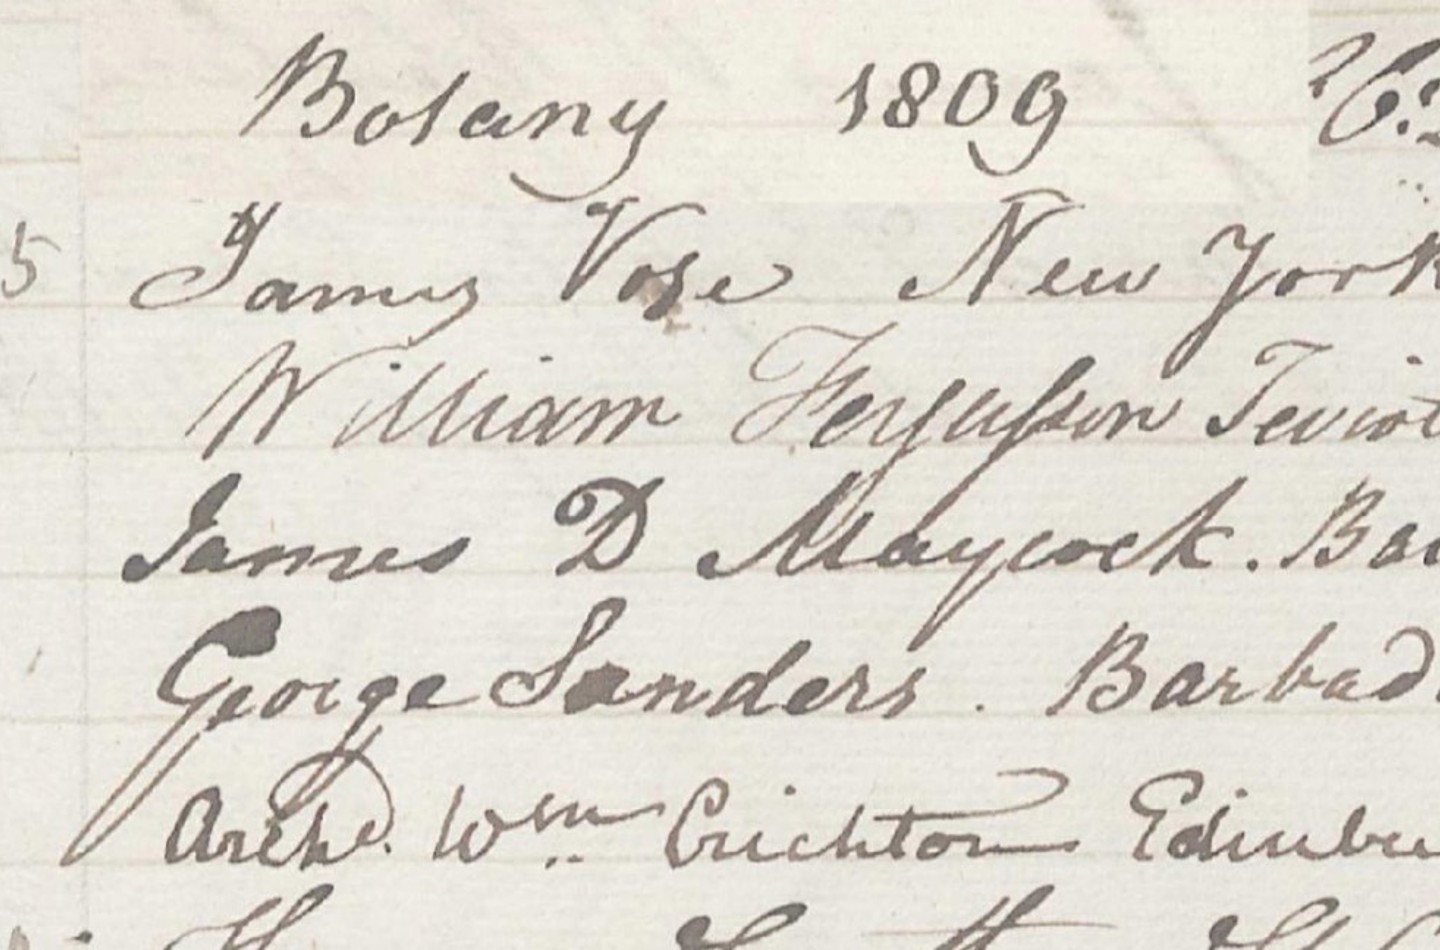 Botany 1809
5 James Vose New York
William Fergusson Teviot
James D Maycock. Bar
George Sanders. Barbad
Archd. Wm Crichton Edinbu